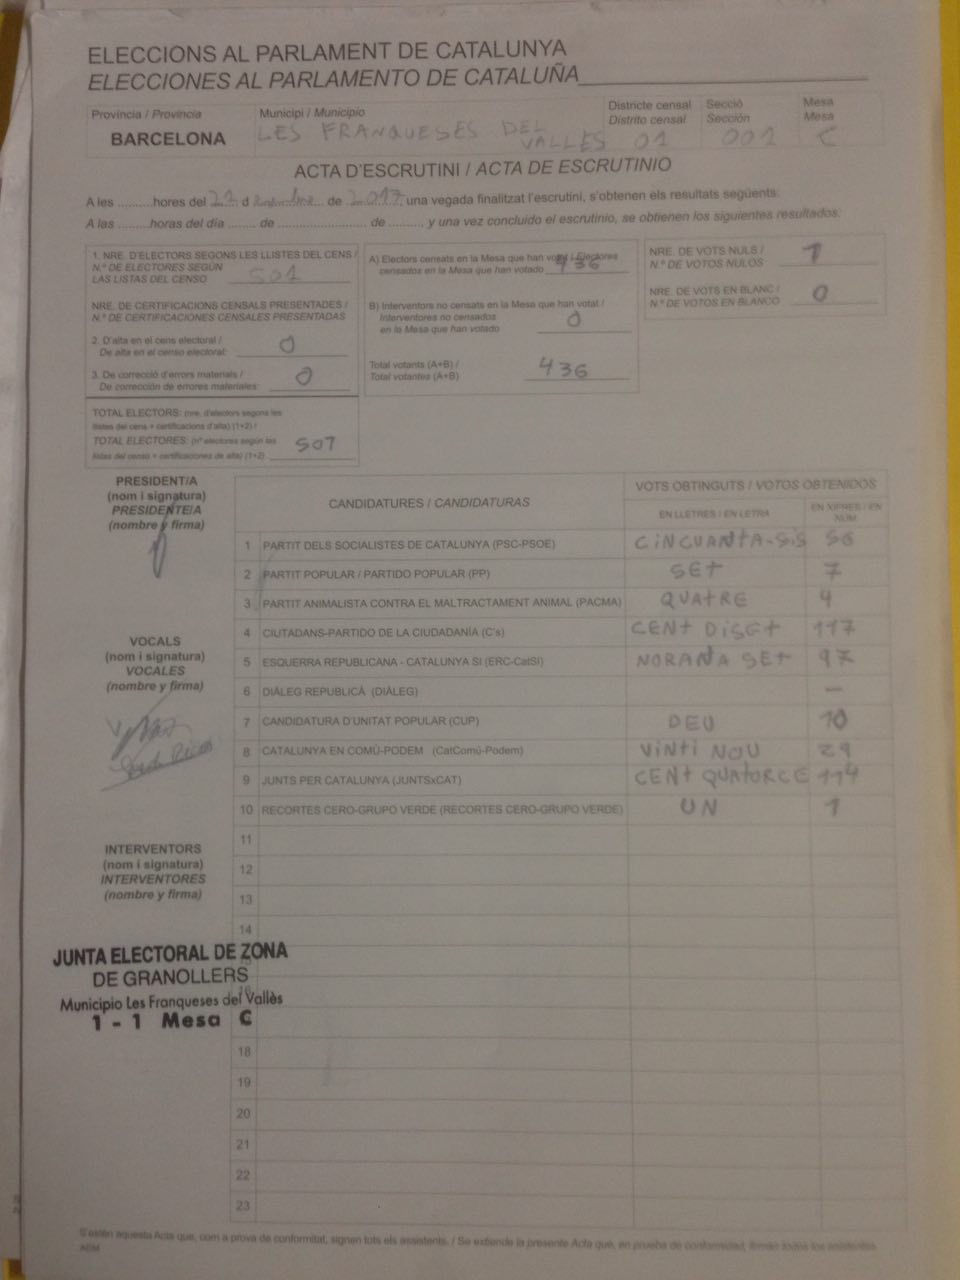 ELECCIONS AL PARLAMENT DE CATALUNYA
ELECCIONES AL PARLAMENTO DE CATALUÑA
Provincia / Provincia
BARCELONA
Municipi / Municipio
LES FRANQUESES DEL
VALLES
Districte censal
Distrito censal
01
Secció
Sección
001
Mesa
Mesa
C
ACTA D'ESCRUTINI / ACTA DE ESCRUTINIO
A les .........hores del 21 d ... de 2017 una vegada finalitzat l'escrutini, s'obtenen els resultats següents:
A las .........horas del día ....... de ........................ de ........, y una vez concluido el escrutinio, se obtienen los siguientes resultados:
1. NRE. D'ELECTORS SEGONS LES LLISTES DEL CENS /
N.º DE ELECTORES SEGÚN
LAS LISTAS DEL CENSO
NRE. DE CERTIFICACIONS CENSALS PRESENTADES /
N.º DE CERTIFICACIONES CENSALES PRESENTADAS
2. D'alta en el cens electoral /
De alta en el censo electoral: 0
3. De correcció d'errors materials /
De corrección de errores materiales: 0
TOTAL ELECTORS: (nre. d'electors segons les
llistes del cens + certificacions d'alta) (1+2) /
TOTAL ELECTORES: (nº electores según las
listas del censo + certificaciones de alta) (1+2) 507
A) Electors censats en la Mesa que han votat / Electores
censados en la Mesa que han votado 436
B) Interventors no censats en la Mesa que han votat /
Interventores no censados
en la Mesa que han votado 0
Total votants (A+B) /
Total votantes (A+B) 436
NRE. DE VOTS NULS /
N.º DE VOTOS NULOS 1
NRE. DE VOTS EN BLANC /
N.º DE VOTOS EN BLANCO 0
PRESIDENT/A
(nom i signatura)
PRESIDENTE/A
(nombre y firma)
VOCALS
(nom i signatura)
VOCALES
(nombre y firma)
INTERVENTORS
(nom i signatura)
INTERVENTORES
(nombre y firma)
CANDIDATURES / CANDIDATURAS
VOTS OBTINGUTS / VOTOS OBTENIDOS
EN LLETRES / EN LETRA
EN XIFRES / EN NÚM.
1 PARTIT DELS SOCIALISTES DE CATALUNYA (PSC-PSOE) CINCUANTA-SIS 56
2 PARTIT POPULAR / PARTIDO POPULAR (PP) SET 7
3 PARTIT ANIMALISTA CONTRA EL MALTRACTAMENT ANIMAL (PACMA) QUATRE 4
4 CIUTADANS-PARTIDO DE LA CIUDADANÍA (C's) CENT DISET 117
5 ESQUERRA REPUBLICANA - CATALUNYA SÍ (ERC-CatSí) NORANA SET 97
6 DIÀLEG REPUBLICÀ (DIÀLEG) —
7 CANDIDATURA D'UNITAT POPULAR (CUP) DEU 10
8 CATALUNYA EN COMÚ-PODEM (CatComú-Podem) VINTI NOU 29
9 JUNTS PER CATALUNYA (JUNTSxCAT) CENT QUATORCE 114
10 RECORTES CERO-GRUPO VERDE (RECORTES CERO-GRUPO VERDE) UN 1
11
12
13
14
JUNTA ELECTORAL DE ZONA
DE GRANOLLERS
Municipio Les Franqueses del Vallès
1 - 1 Mesa C
18
19
20
21
22
23
S'estén aquesta Acta que, com a prova de conformitat, signen tots els assistents. / Se extiende la presente Acta que, en prueba de conformidad, firman todos los asistentes.